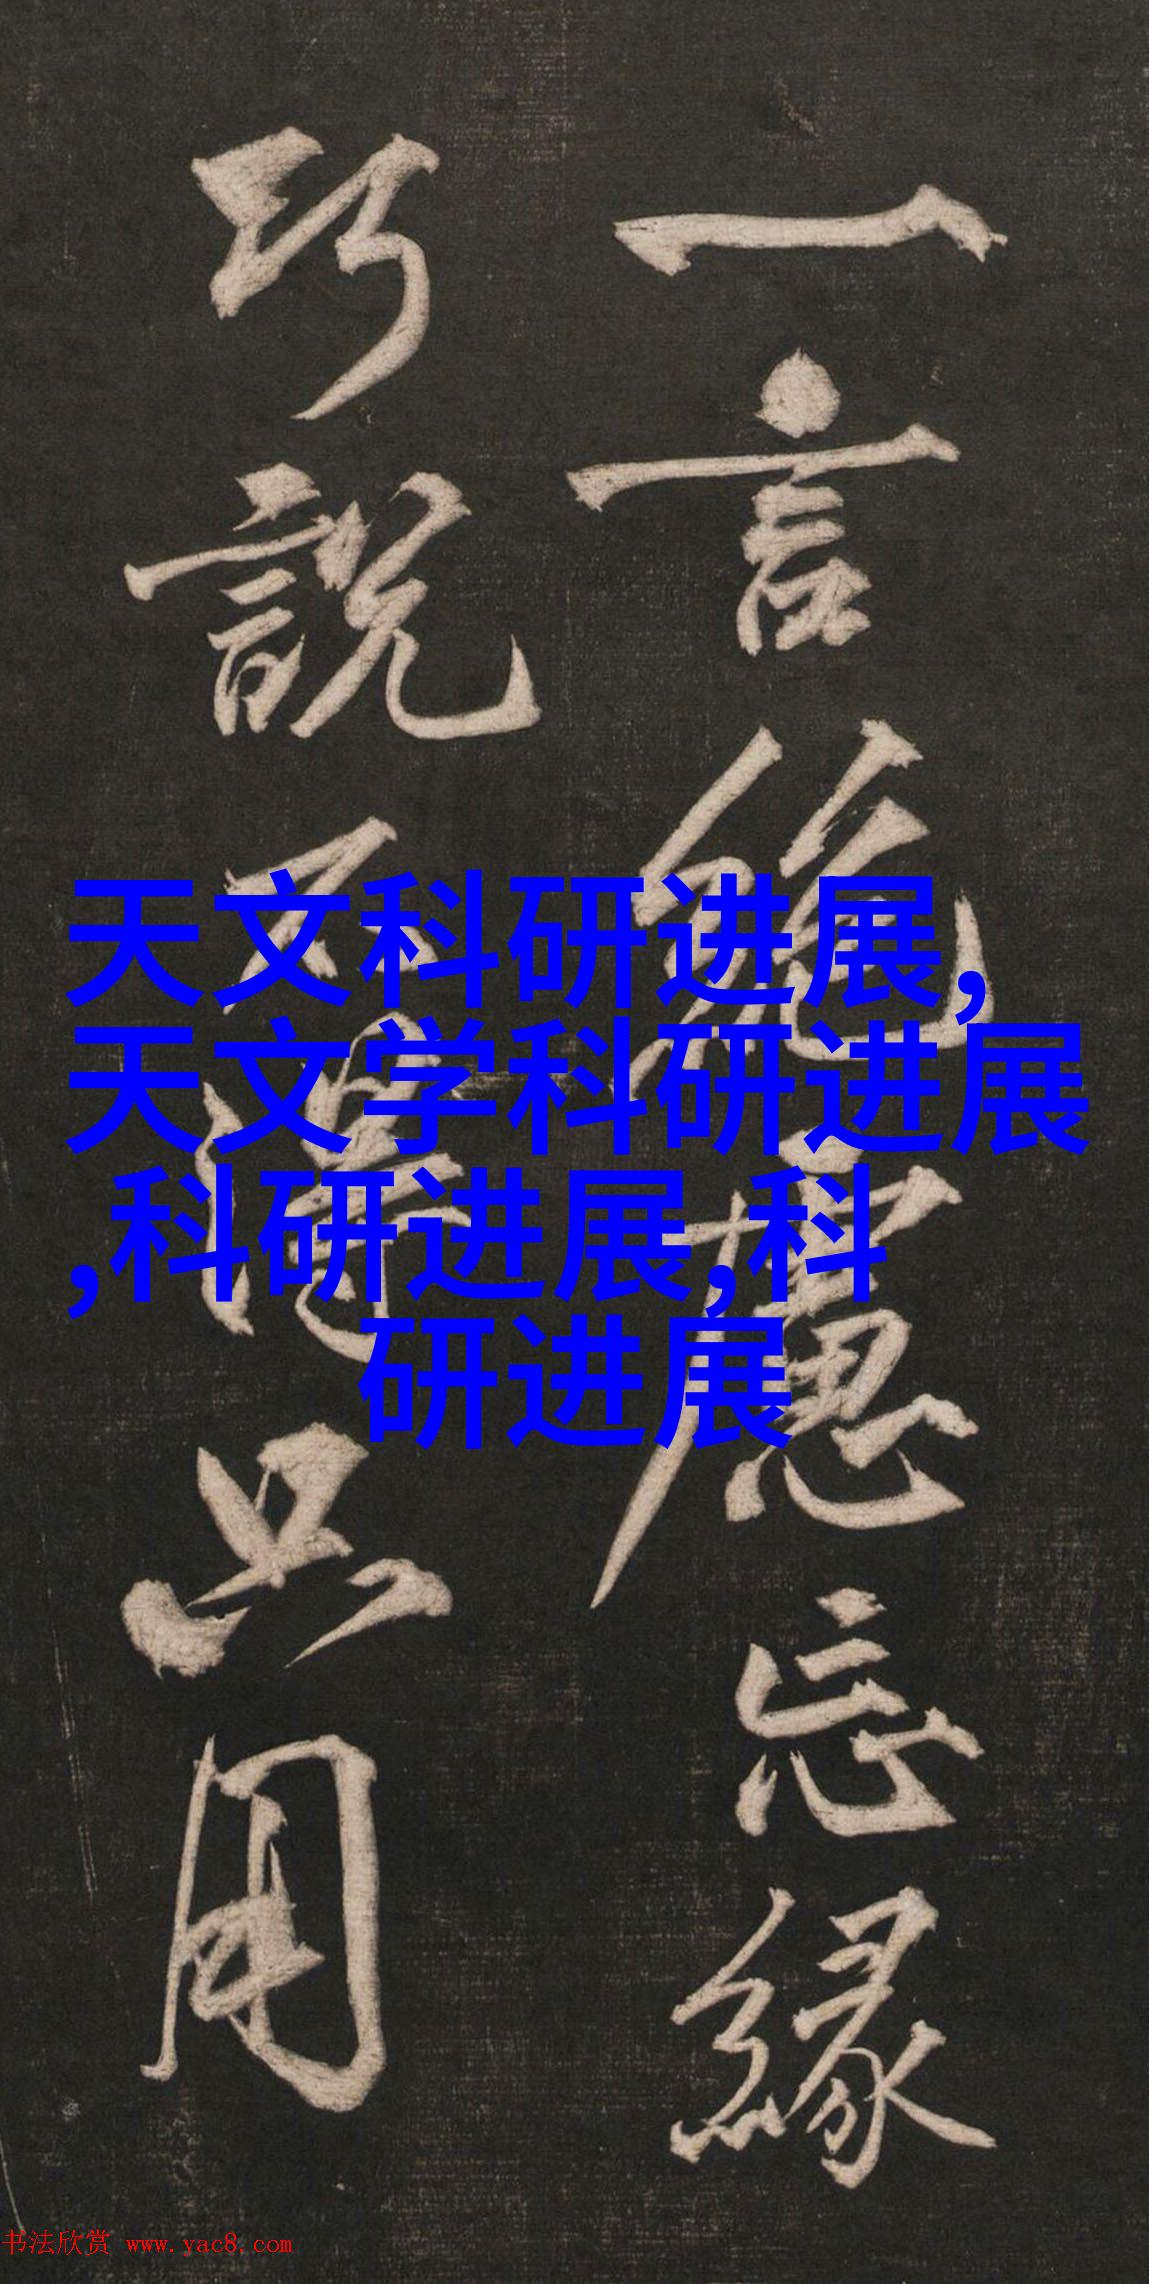 一言絶慮忘緣
巧說不得只用
天文科研进展,
天文学科研进展
,科研进展,科
研进展
书法欣赏 www.yac8.com